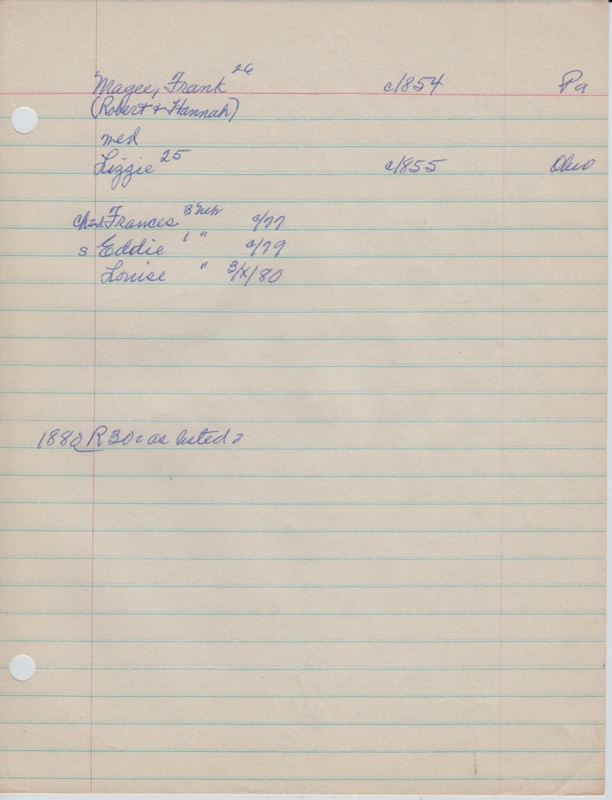 Magee, Frank 26 c/854 Pa
(Robert + Hannah)
med
Lizzie 25 c/855 Ohio
Frances 3 c/77
s Eddie 1 " c/79
Louise " 3/X/80
1880 R 30 = as listed =